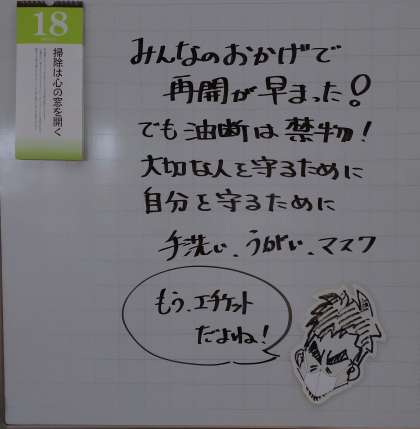 18
掃除は心の窓を開く
みんなのおかげで
再開が早まった!
でも油断は禁物!
大切な人を守るために
自分を守るために
手洗い、うがい、マスク
もう、エチケット
だよね!